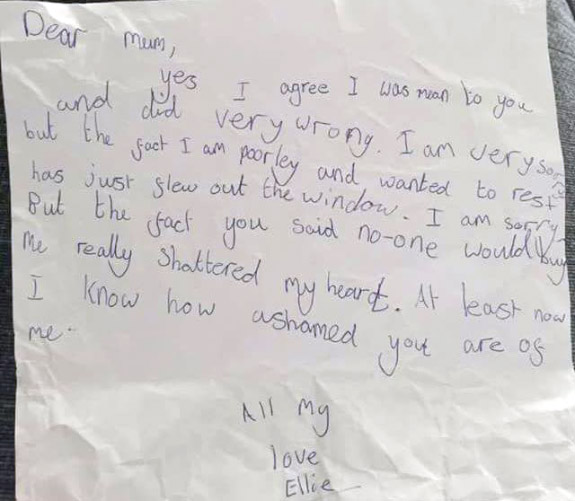 Dear mum,
yes I agree I was mean to you
and did very wrong. I am very sorry
but the fact I am poorley and wanted to rest
has just flew out the window. I am sorry
But the fact you said no-one would buy
me really shattered my heart. At least now
I know how ashamed you are of
me.
All my
love
Ellie